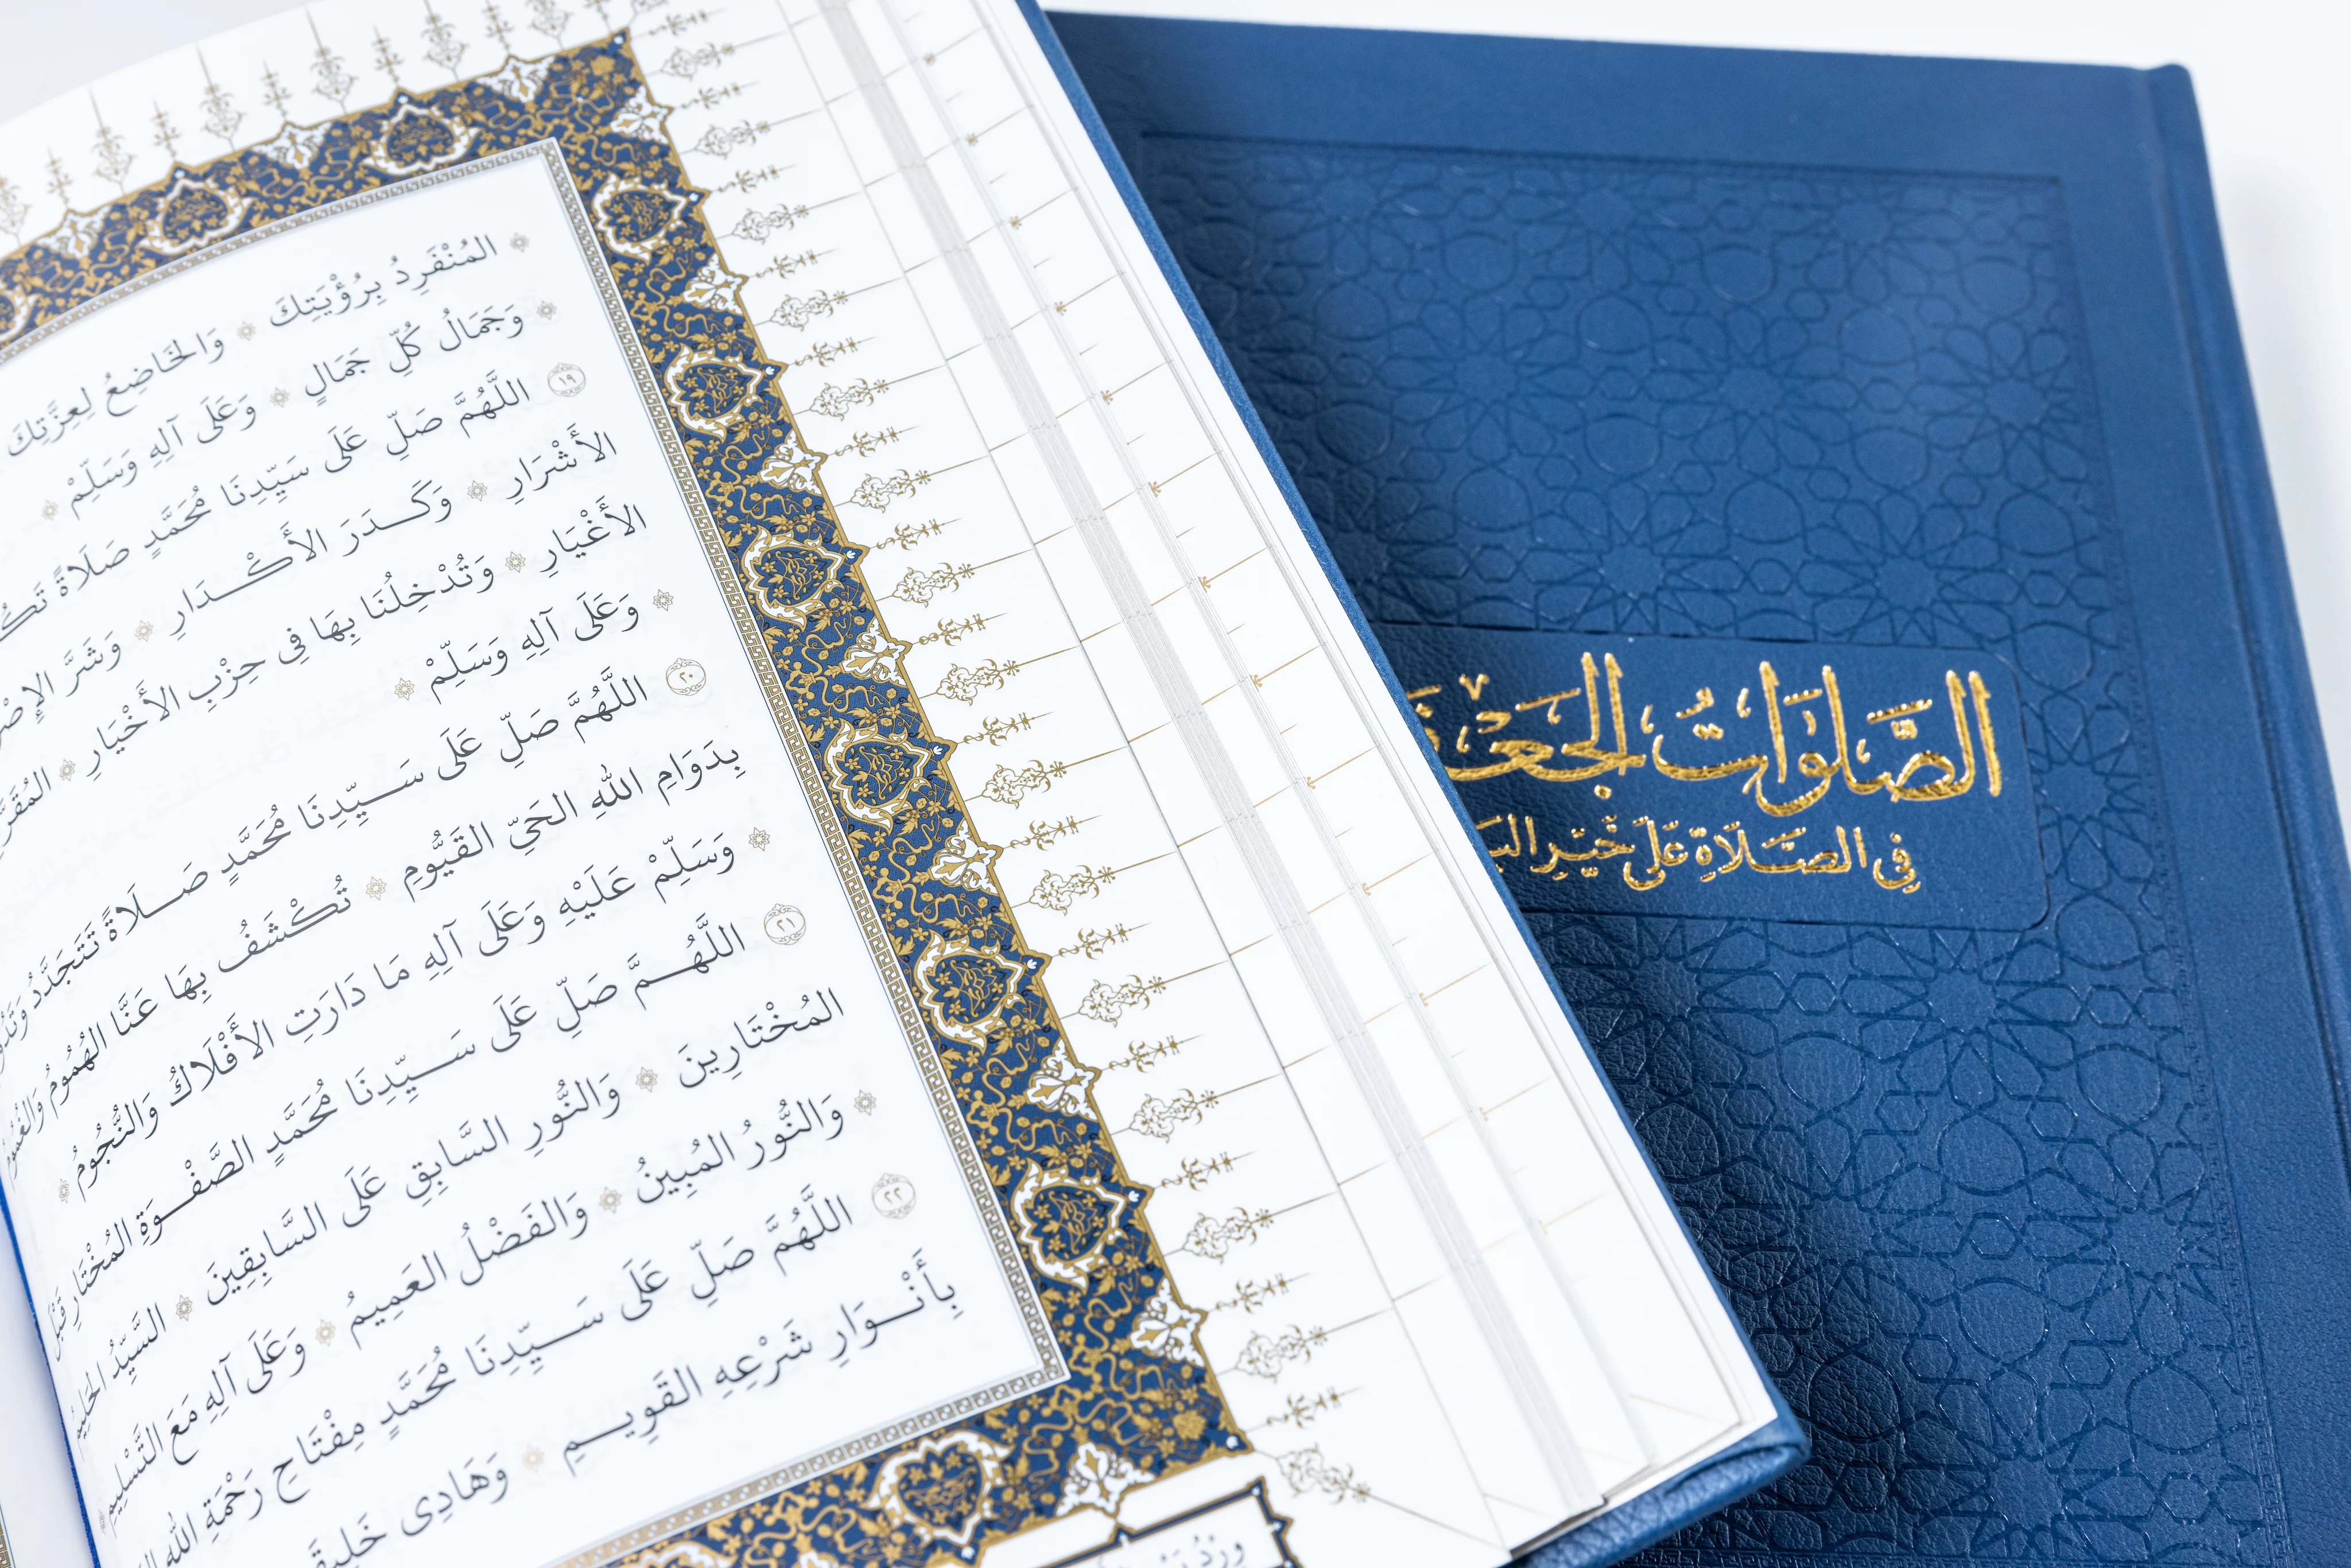 المُنْفَرِدُ بِرُؤْيَتِكَ ۞ وَالخَاضِعُ لِعِزَّتِكَ
وَجَمَالُ كُلِّ جَمَالٍ ۞ وَعَلَى آلِهِ وَسَلِّمْ
١٩ اللَّهُمَّ صَلِّ عَلَى سَيِّدِنَا مُحَمَّدٍ صَلَاةً
الأَشْرَارِ ۞ وَكَـدَرَ الأَكْـدَارِ ۞ وَشَرَّ
الأَغْيَارِ ۞ وَتُدْخِلُنَا بِهَا فِي حِزْبِ الأَخْيَارِ ۞
وَعَلَى آلِهِ وَسَلِّمْ ۞
٢٠ اللَّهُمَّ صَلِّ عَلَى سَـيِّدِنَا مُحَمَّدٍ صَـلَاةً تَتَجَدَّدُ
بِدَوَامِ اللهِ الحَيِّ القَيُّومِ ۞ تُكْشَفُ بِهَا عَنَّا الهُمُومُ وَالغُمُومُ
۞ وَسَلِّمْ عَلَيْهِ وَعَلَى آلِهِ مَا دَارَتِ الأَفْلَاكُ وَالنُّجُومُ ۞
٢١ اللَّهُـمَّ صَلِّ عَلَى سَـيِّدِنَا مُحَمَّدٍ الصَّفْـوَةِ المُخْتَارِ قَبْلَ
المُخْتَارِينَ ۞ وَالنُّورِ السَّابِقِ عَلَى السَّابِقِينَ ۞ السَّيِّدُ
۞ وَالنُّورُ المُبِينُ ۞ وَالفَضْلُ العَمِيمُ ۞ وَعَلَى آلِهِ مَعَ التَّسْلِيمِ
٢٢ اللَّهُمَّ صَلِّ عَلَى سَـيِّدِنَا مُحَمَّدٍ مِفْتَاحِ رَحْمَةِ اللهِ
بِأَنْـوَارِ شَرْعِهِ القَوِيـمِ ۞ وَهَادِي
الصَّلَوَاتُ
فِي الصَّلَاةِ عَلَى خَيْرِ